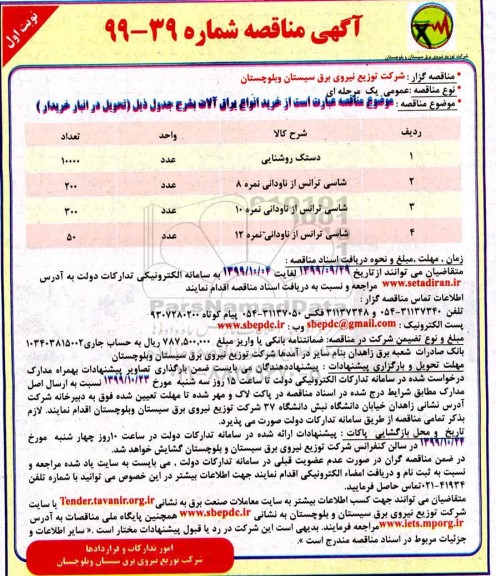 نوبت اول
آگهی مناقصه شماره ۳۹-۹۹
شرکت توزیع نیروی برق سیستان و بلوچستان
* مناقصه گزار : شرکت توزیع نیروی برق سیستان وبلوچستان
* نوع مناقصه :عمومی یک مرحله ای
* موضوع مناقصه : موضوع مناقصه عبارت است از خرید انواع یراق آلات بشرح جدول ذیل (تحویل در انبار خریدار )
ردیف شرح کالا واحد تعداد
۱ دستک روشنایی عدد ۱۰۰۰۰
۲ شاسی ترانس از ناودانی نمره ۸ عدد ۲۰۰
۳ شاسی ترانس از ناودانی نمره ۱۰ عدد ۳۰۰
۴ شاسی ترانس از ناودانی نمره ۱۲ عدد ۵۰
زمان , مهلت ,مبلغ و نحوه دریافت اسناد مناقصه :
متقاضیان می توانند ازتاریخ ۱۳۹۹/۰۹/۲۹ لغایت ۱۳۹۹/۱۰/۰۴ به سامانه الکترونیکی تدارکات دولت به آدرس
www.setadiran.ir مراجعه و نسبت به دریافت اسناد مناقصه اقدام نمایند
اطلاعات تماس مناقصه گزار :
تلفن ۳۱۱۳۷۳۴۰-۰۵۴ و ۳۱۱۳۷۳۴۸ فکس ۳۱۱۳۷۰۵۰-۰۵۴ پیام کوتاه ۹۳۰۷۲۸۰۲۰۰
پست الکترونیک : sbepdc@gmail.com وب : www.sbepdc.ir
مبلغ و نوع تضمین شرکت در مناقصه: ضمانتنامه بانکی یا واریز مبلغ ۷۸۷,۵۰۰,۰۰۰ ریال به حساب جاری۱۰۳۴۰۳۸۱۵۰۰۲
بانک صادرات شعبه برق زاهدان بنام سایر در آمدها شرکت توزیع نیروی برق سیستان وبلوچستان
مهلت تحویل و بارگذاری پیشنهادات : پیشنهاددهندگان می بایست ضمن بارگذاری تصاویر پیشنهادات بهمراه مدارک
درخواست شده در سامانه تدارکات الکترونیکی دولت تا ساعت ۱۵ روز سه شنبه مورخ ۱۳۹۹/۱۰/۲۳ نسبت به ارسال اصل
مدارک مطابق شرایط درج شده در اسناد مناقصه در پاکت لاک و مهر شده تا مهلت تعیین شده فوق به دبیرخانه شرکت
آدرس نشانی زاهدان خیابان دانشگاه نبش دانشگاه ۳۷ شرکت توزیع نیروی برق سیستان وبلوچستان اقدام نمایند. لازم
بذکر تمامی مناقصه از طریق سامانه تدارکات دولت صورت می پذیرد.
تاریخ و محل بازگشایی پاکات : پیشنهادات ارائه شده در سامانه تدارکات دولت در ساعت ۱۰روز چهار شنبه مورخ
۱۳۹۹/۱۰/۲۴ در سالن کنفرانس شرکت توزیع نیروی برق سیستان و بلوچستان گشایش خواهد شد.
در ضمن مناقصه گران در صورت عدم عضویت قبلی در سامانه تدارکات دولت , می بایست به سایت یاد شده مراجعه و
نسبت به ثبت نام و دریافت امضاء الکترونیکی اقدام نمایند جهت اطلاعات بیشتر در این خصوص می توانید با شماره تلفن
۴۱۹۳۴-۰۲۱تماس حاصل فرمایید.
متقاضیان می توانند جهت کسب اطلاعات بیشتر به سایت معاملات صنعت برق به نشانی Tender.tavanir.org.ir یا سایت
شرکت توزیع نیروی برق سیستان و بلوچستان به نشانی www.sbepdc.ir همچنین پایگاه ملی مناقصات به آدرس
www.iets.mporg.ir مراجعه فرمایند. بدیهی است این شرکت در رد یا قبول پیشنهادات مختار است .« سایر اطلاعات و
جزئیات مربوط در اسناد مناقصه مندرج است ».
امور تدارکات و قراردادها
شرکت توزیع نیروی برق سیستان وبلوچستان
ParsNamadData